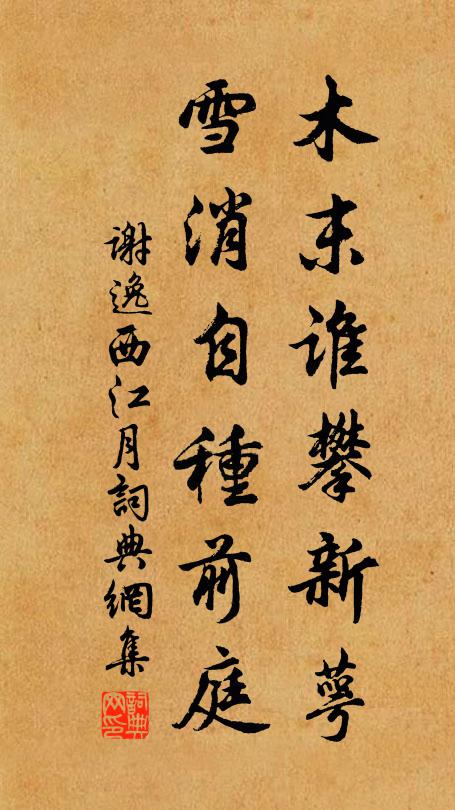 木末誰攀新萼
雪消自種前庭
謝逸西江月詞典網集
詞典网印